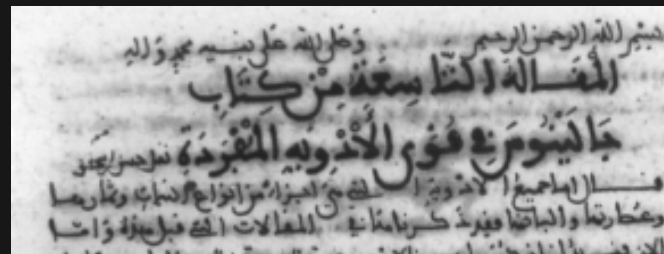 بسم الله الرحمن الرحيم وصلى الله على نبيه محمد واله
المقالة التاسعة من كتاب
جالينوس في قوى الأدوية المفردة نقل حنين بن اسحق
قال اما جميع الادوية التي هي اجزاء من انواع النبات وثمارها
وعصارتها والبانها فقد ذكرناها في المقالات التي قبل هذه واما